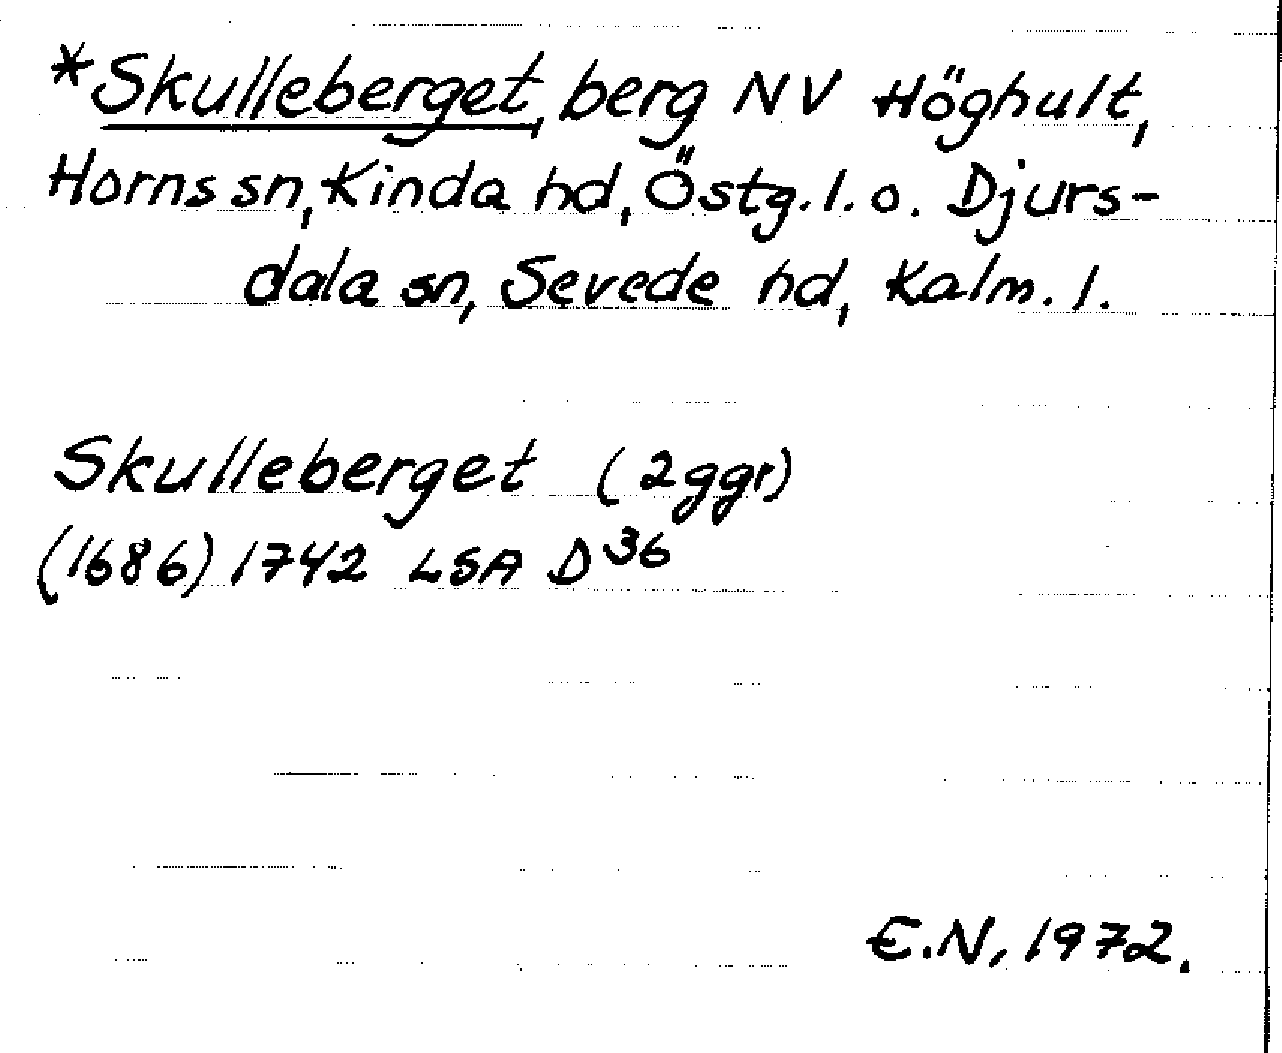 *Skulleberget, berg NV Höghult,
Horns sn, Kinda hd, Östg. l. o. Djurs-
dala sn, Sevede hd, Kalm. l.
Skulleberget (2 ggr)
(1686) 1742 LSA D36
E.N, 1972.